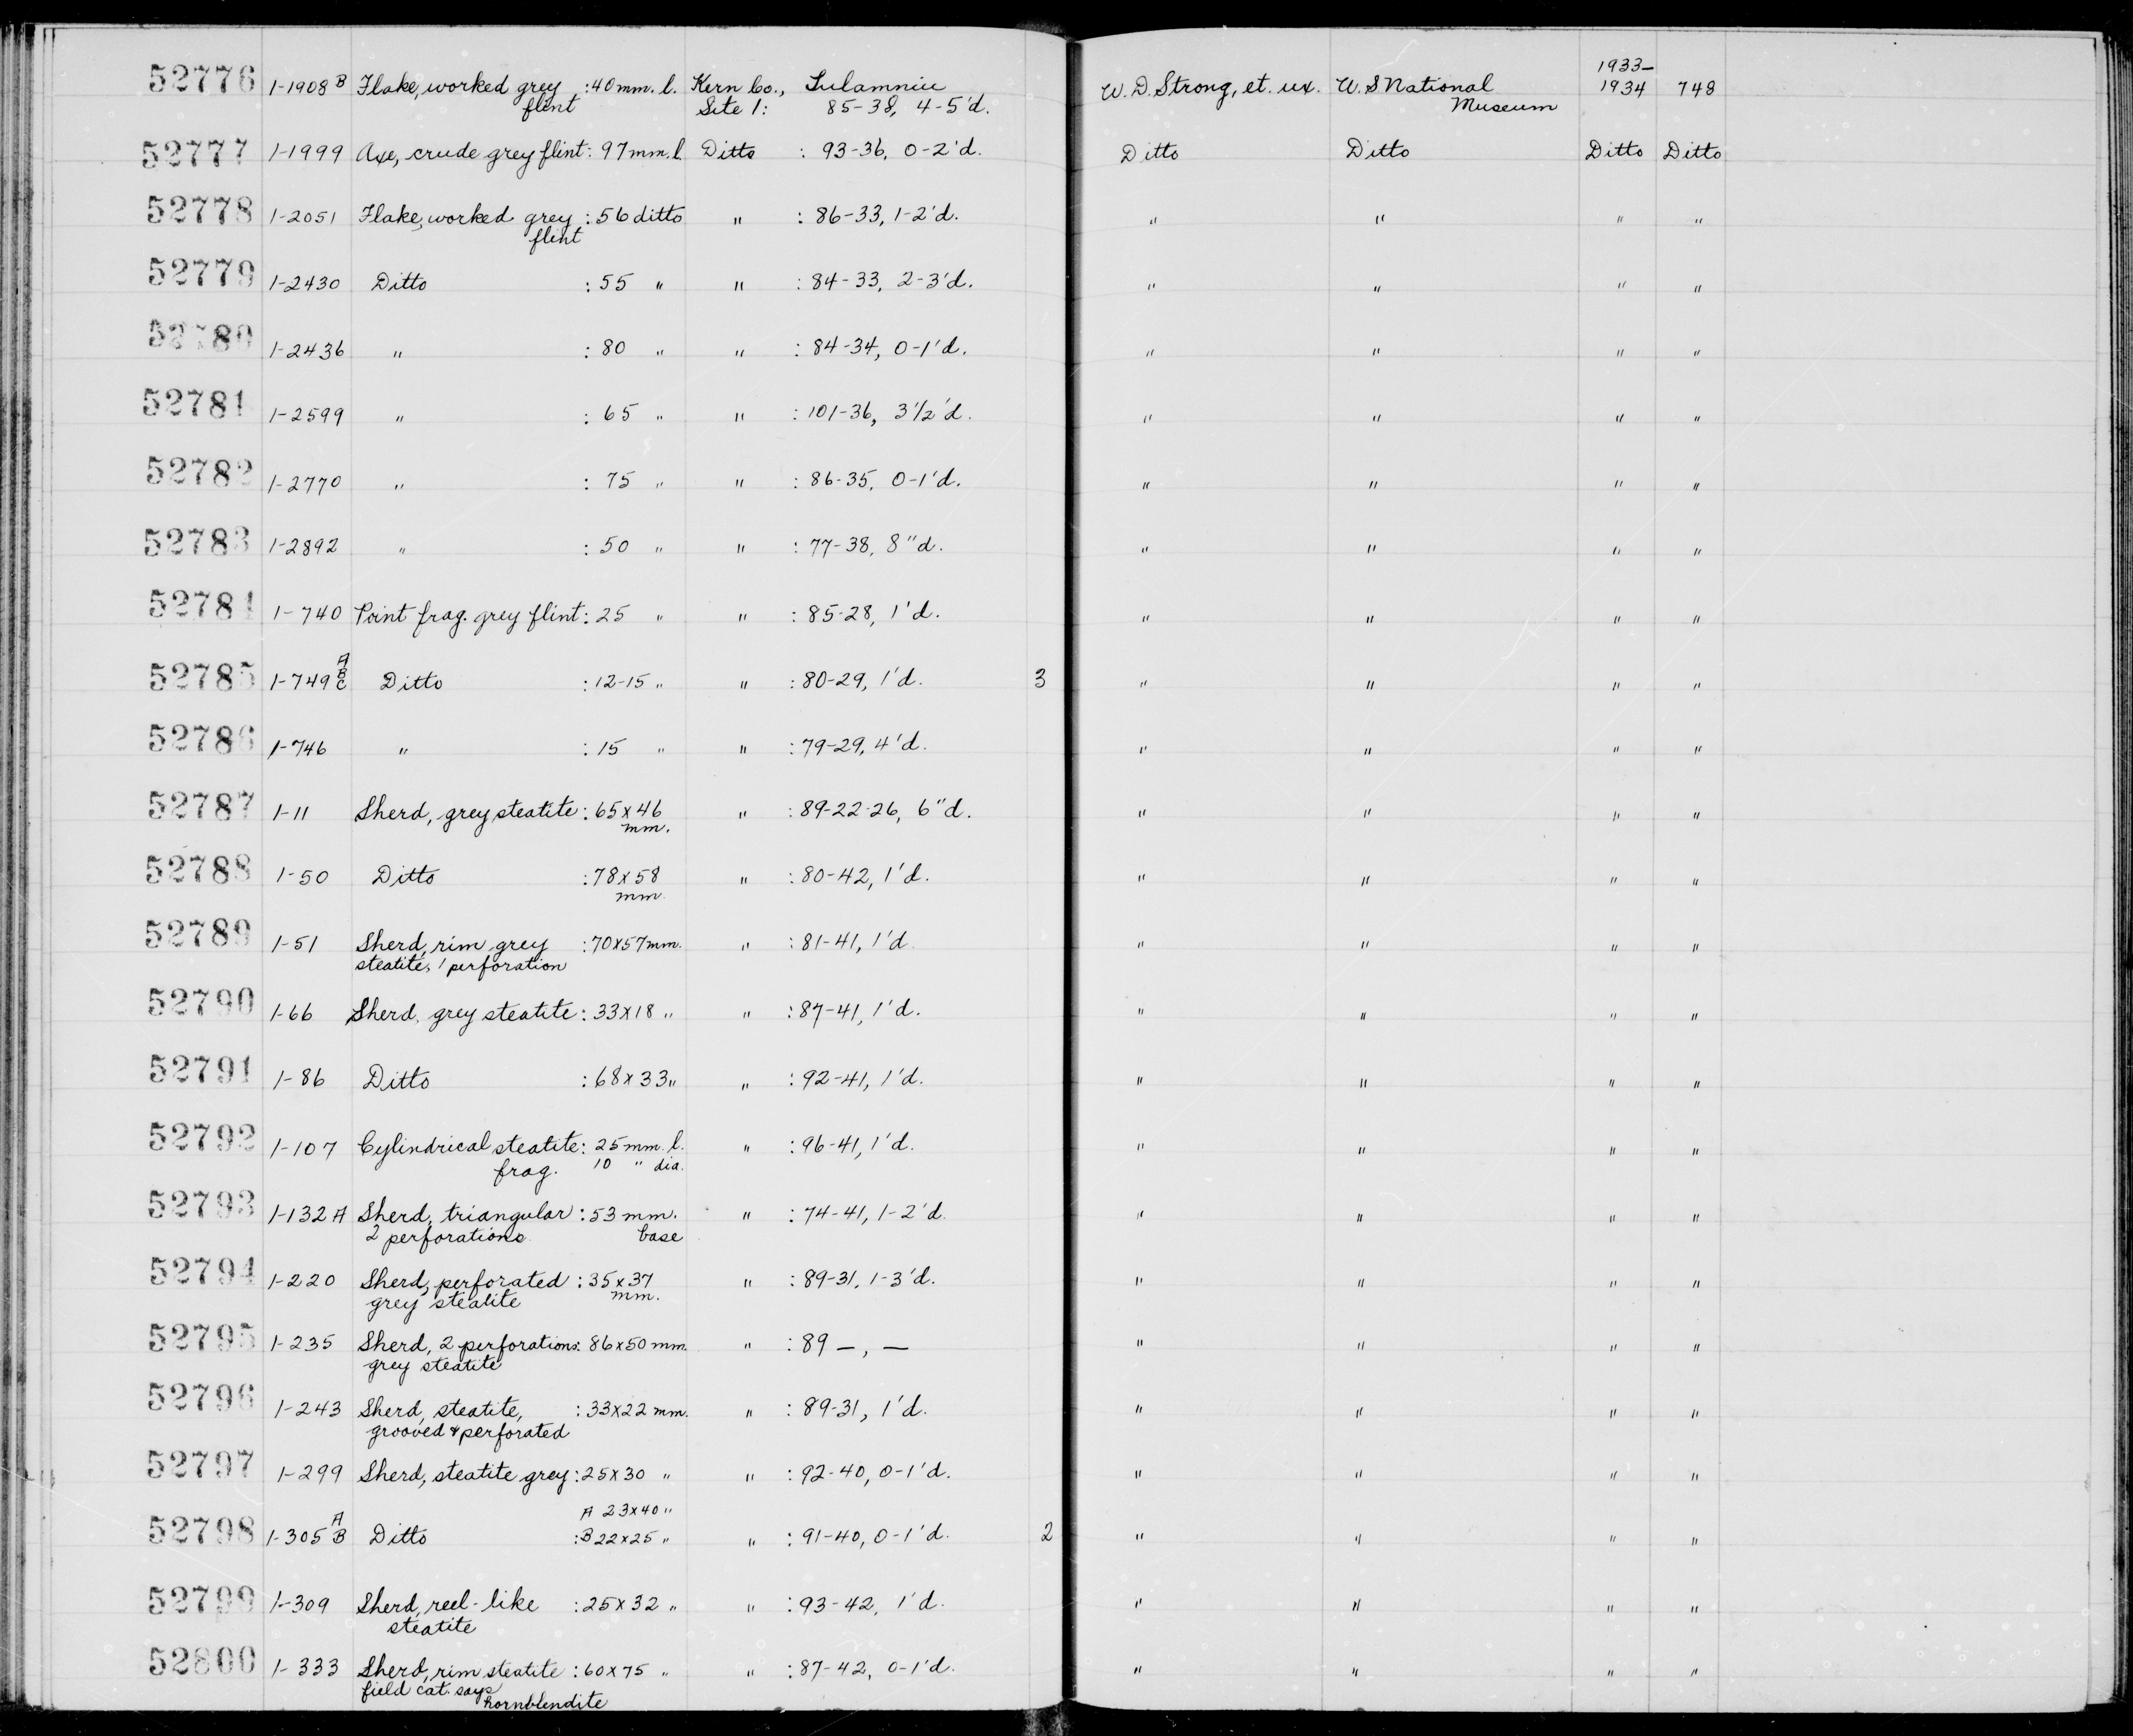 52776 1-1908 B Flake, worked grey flint : 40 mm. l. Kern Co., Site 1: Tulamniu 85-38, 4-5'd. W. D. Strong, et. ux. U. S National Museum 1933-1934 748
52777 1-1999 Axe, crude grey flint : 97 mm. l. Ditto : 93-36, 0-2'd. Ditto Ditto Ditto Ditto
52778 1-2051 Flake, worked grey flint : 56 ditto " : 86-33, 1-2'd. " " " "
52779 1-2430 Ditto : 55 " " : 84-33, 2-3'd. " " " "
52780 1-2436 " : 80 " " : 84-34, 0-1'd. " " " "
52781 1-2599 " : 65 " " : 101-36, 3 1/2'd. " " " "
52782 1-2770 " : 75 " " : 86-35, 0-1'd. " " " "
52783 1-2892 " : 50 " " : 77-38, 8"d. " " " "
52784 1-740 Point frag. grey flint : 25 " " : 85-28, 1'd. " " " "
52785 1-749 A B C Ditto : 12-15 " " : 80-29, 1'd. 3 " " " "
52786 1-746 " : 15 " " : 79-29, 4'd. " " " "
52787 1-11 Sherd, grey steatite : 65 x 46 mm. " : 89-22-26, 6"d. " " " "
52788 1-50 Ditto : 78 x 58 mm. " : 80-42, 1'd. " " " "
52789 1-51 Sherd, rim, grey steatite, 1 perforation : 70x57 mm. " : 81-41, 1'd. " " " "
52790 1-66 Sherd, grey steatite : 33x18 " " : 87-41, 1'd. " " " "
52791 1-86 Ditto : 68 x 33 " " : 92-41, 1'd. " " " "
52792 1-107 Cylindrical steatite frag. : 25 mm. l. 10 " dia. " : 96-41, 1'd. " " " "
52793 1-132 A Sherd, triangular 2 perforations : 53 mm. base " : 74-41, 1-2'd. " " " "
52794 1-220 Sherd, perforated grey steatite : 35 x 37 mm. " : 89-31, 1-3'd. " " " "
52795 1-235 Sherd, 2 perforations grey steatite : 86x50 mm. " : 89 —, — " " " "
52796 1-243 Sherd, steatite, grooved & perforated : 33x22 mm. " : 89-31, 1'd. " " " "
52797 1-299 Sherd, steatite grey : 25x30 " " : 92-40, 0-1'd. " " " "
52798 1-305 A B Ditto A 23x40 " : B 22x25 " " : 91-40, 0-1'd. 2 " " " "
52799 1-309 Sherd, reel-like steatite : 25x32 " " : 93-42, 1'd. " " " "
52800 1-333 Sherd, rim steatite field cat. says hornblendite : 60x75 " " : 87-42, 0-1'd. " " " "